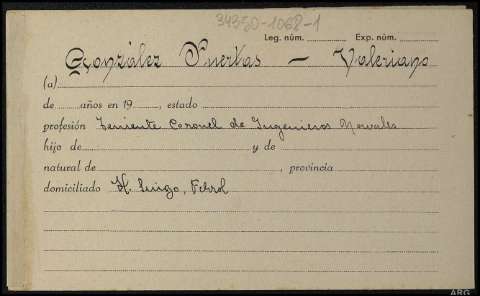 34350-1068-1
Leg. núm. Exp. núm.
González Puertas — Valeriano
(a)
de años en 19 , estado
profesión Teniente Coronel de Ingenieros Navales
hijo de y de
natural de , provincia
domiciliado H. Suizo, Ferrol
ARG